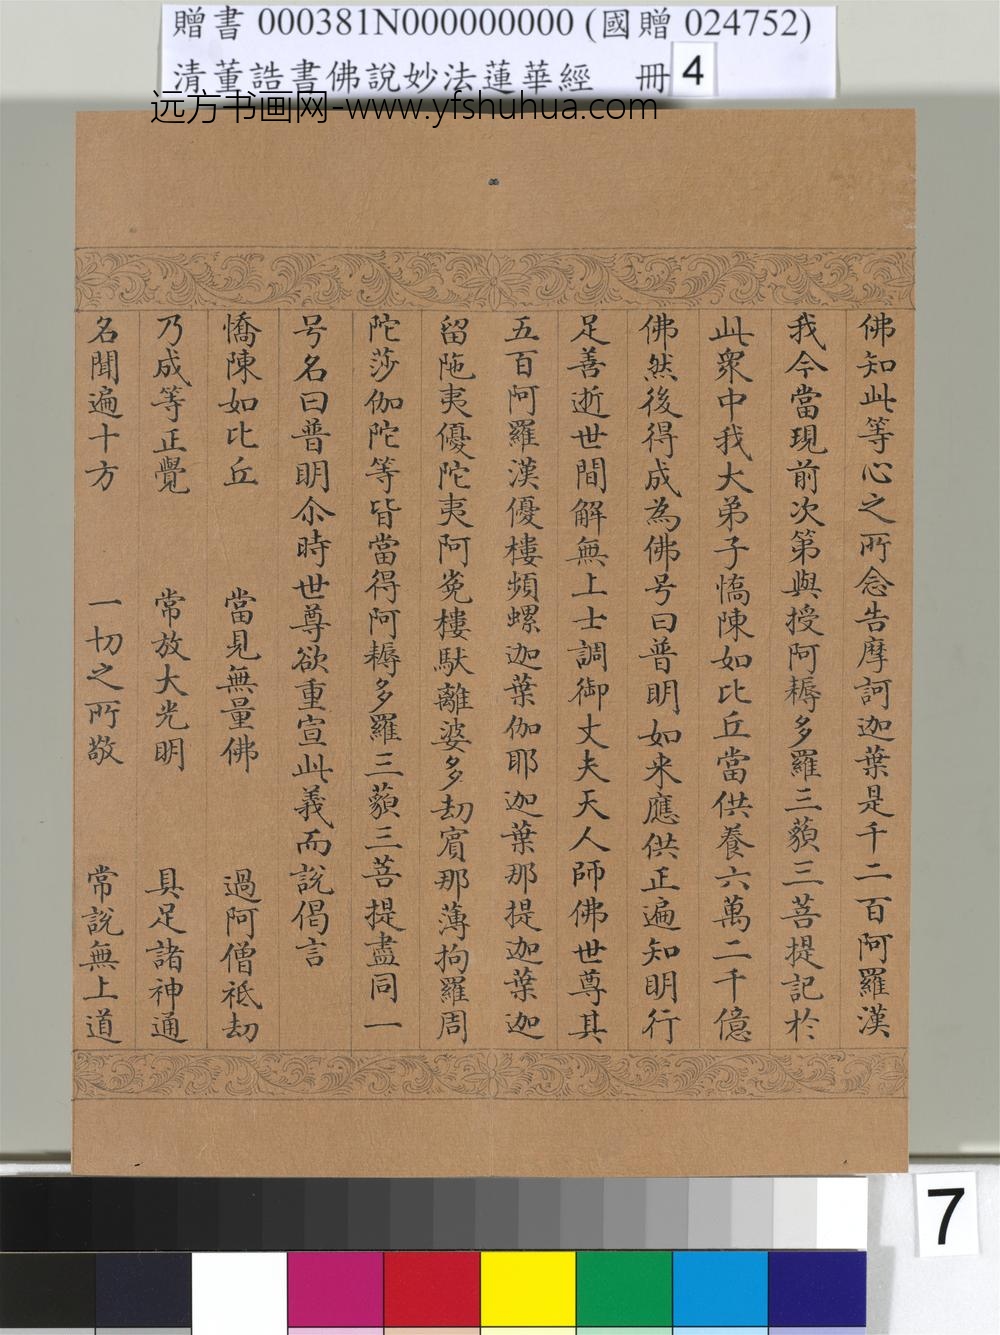 贈書 000381N000000000 (國贈 024752)
清董誥書佛說妙法蓮華經 冊 4
远方书画网-www.yfshuhua.com
佛知此等心之所念告摩訶迦葉是千二百阿羅漢
我今當現前次第與授阿耨多羅三藐三菩提記於
此衆中我大弟子憍陳如比丘當供養六萬二千億
佛然後得成為佛号曰普明如来應供正遍知明行
足善逝世間解無上士調御丈夫天人師佛世尊其
五百阿羅漢優樓頻螺迦葉伽耶迦葉那提迦葉迦
留陁夷優陀夷阿㝹樓馱離婆多劫賓那薄拘羅周
陀莎伽陀等皆當得阿耨多羅三藐三菩提盡同一
号名曰普明尒時世尊欲重宣此義而說偈言
憍陳如比丘 當見無量佛 過阿僧祇劫
乃成等正覺 常放大光明 具足諸神通
名聞遍十方 一切之所敬 常說無上道
7